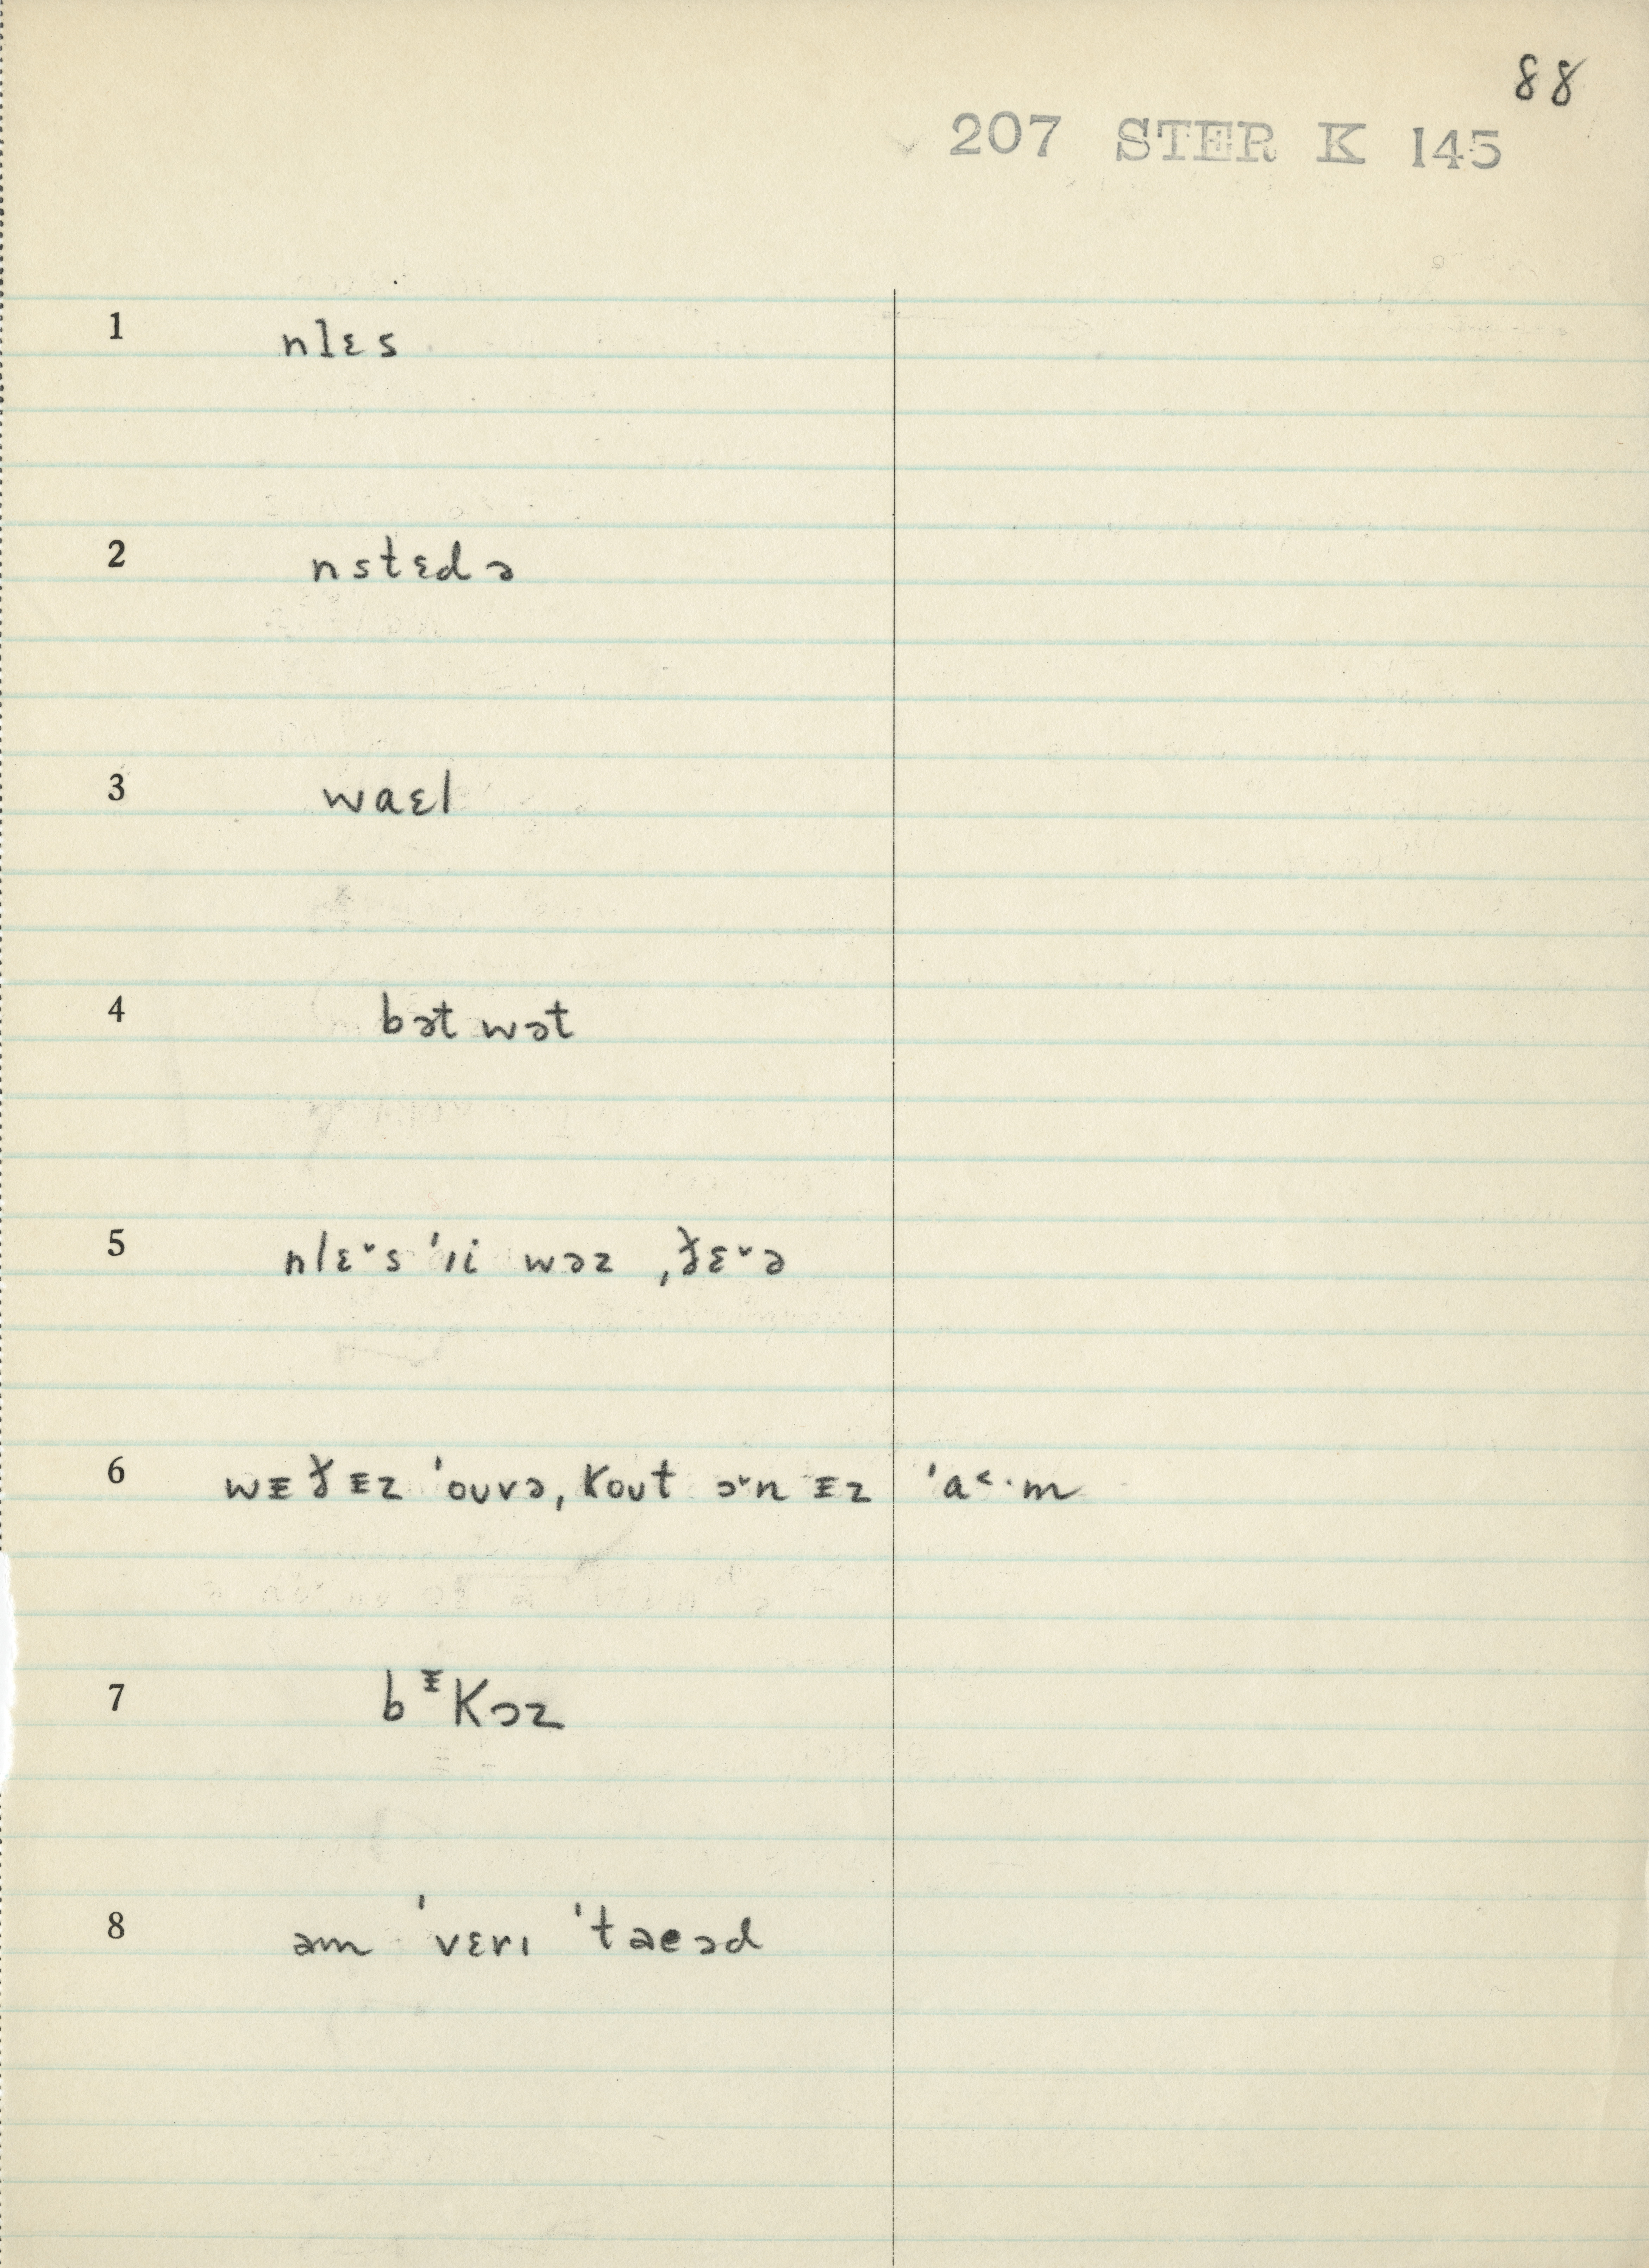 88
207 STER K 145
1 nlɛs
2 nstɛdə
3 waɛl
4 bət wət
5 nlɛ˅s 'ɪi wəz ,ðɛ˅ə
6 wᵻðᵻz 'oʊvə, kout ɔ˅n ᵻz 'a˂·m
7 bᵻkɔz
8 əm 'vɛrɪ 'taeəd